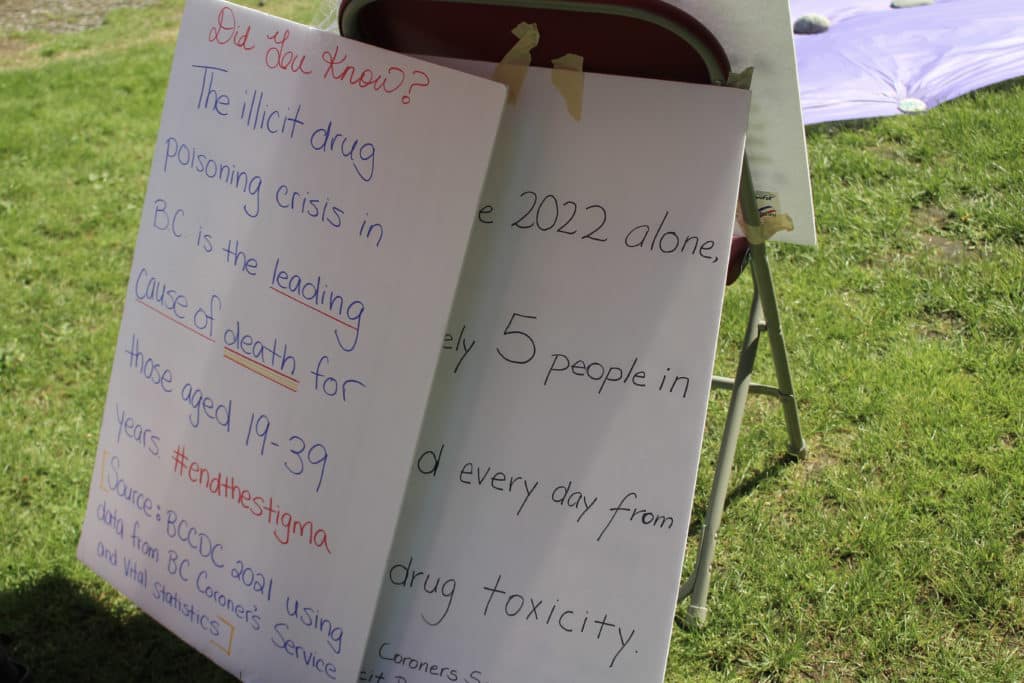 Did You Know?
The illicit drug
poisoning crisis in
BC is the leading
cause of death for
those aged 19-39
years. #endthestigma
[Source: BCCDC 2021 using
data from BC Coroner's Service
and Vital Statistics]
e 2022 alone,
ely 5 people in
d every day from
drug toxicity.
Coroners S